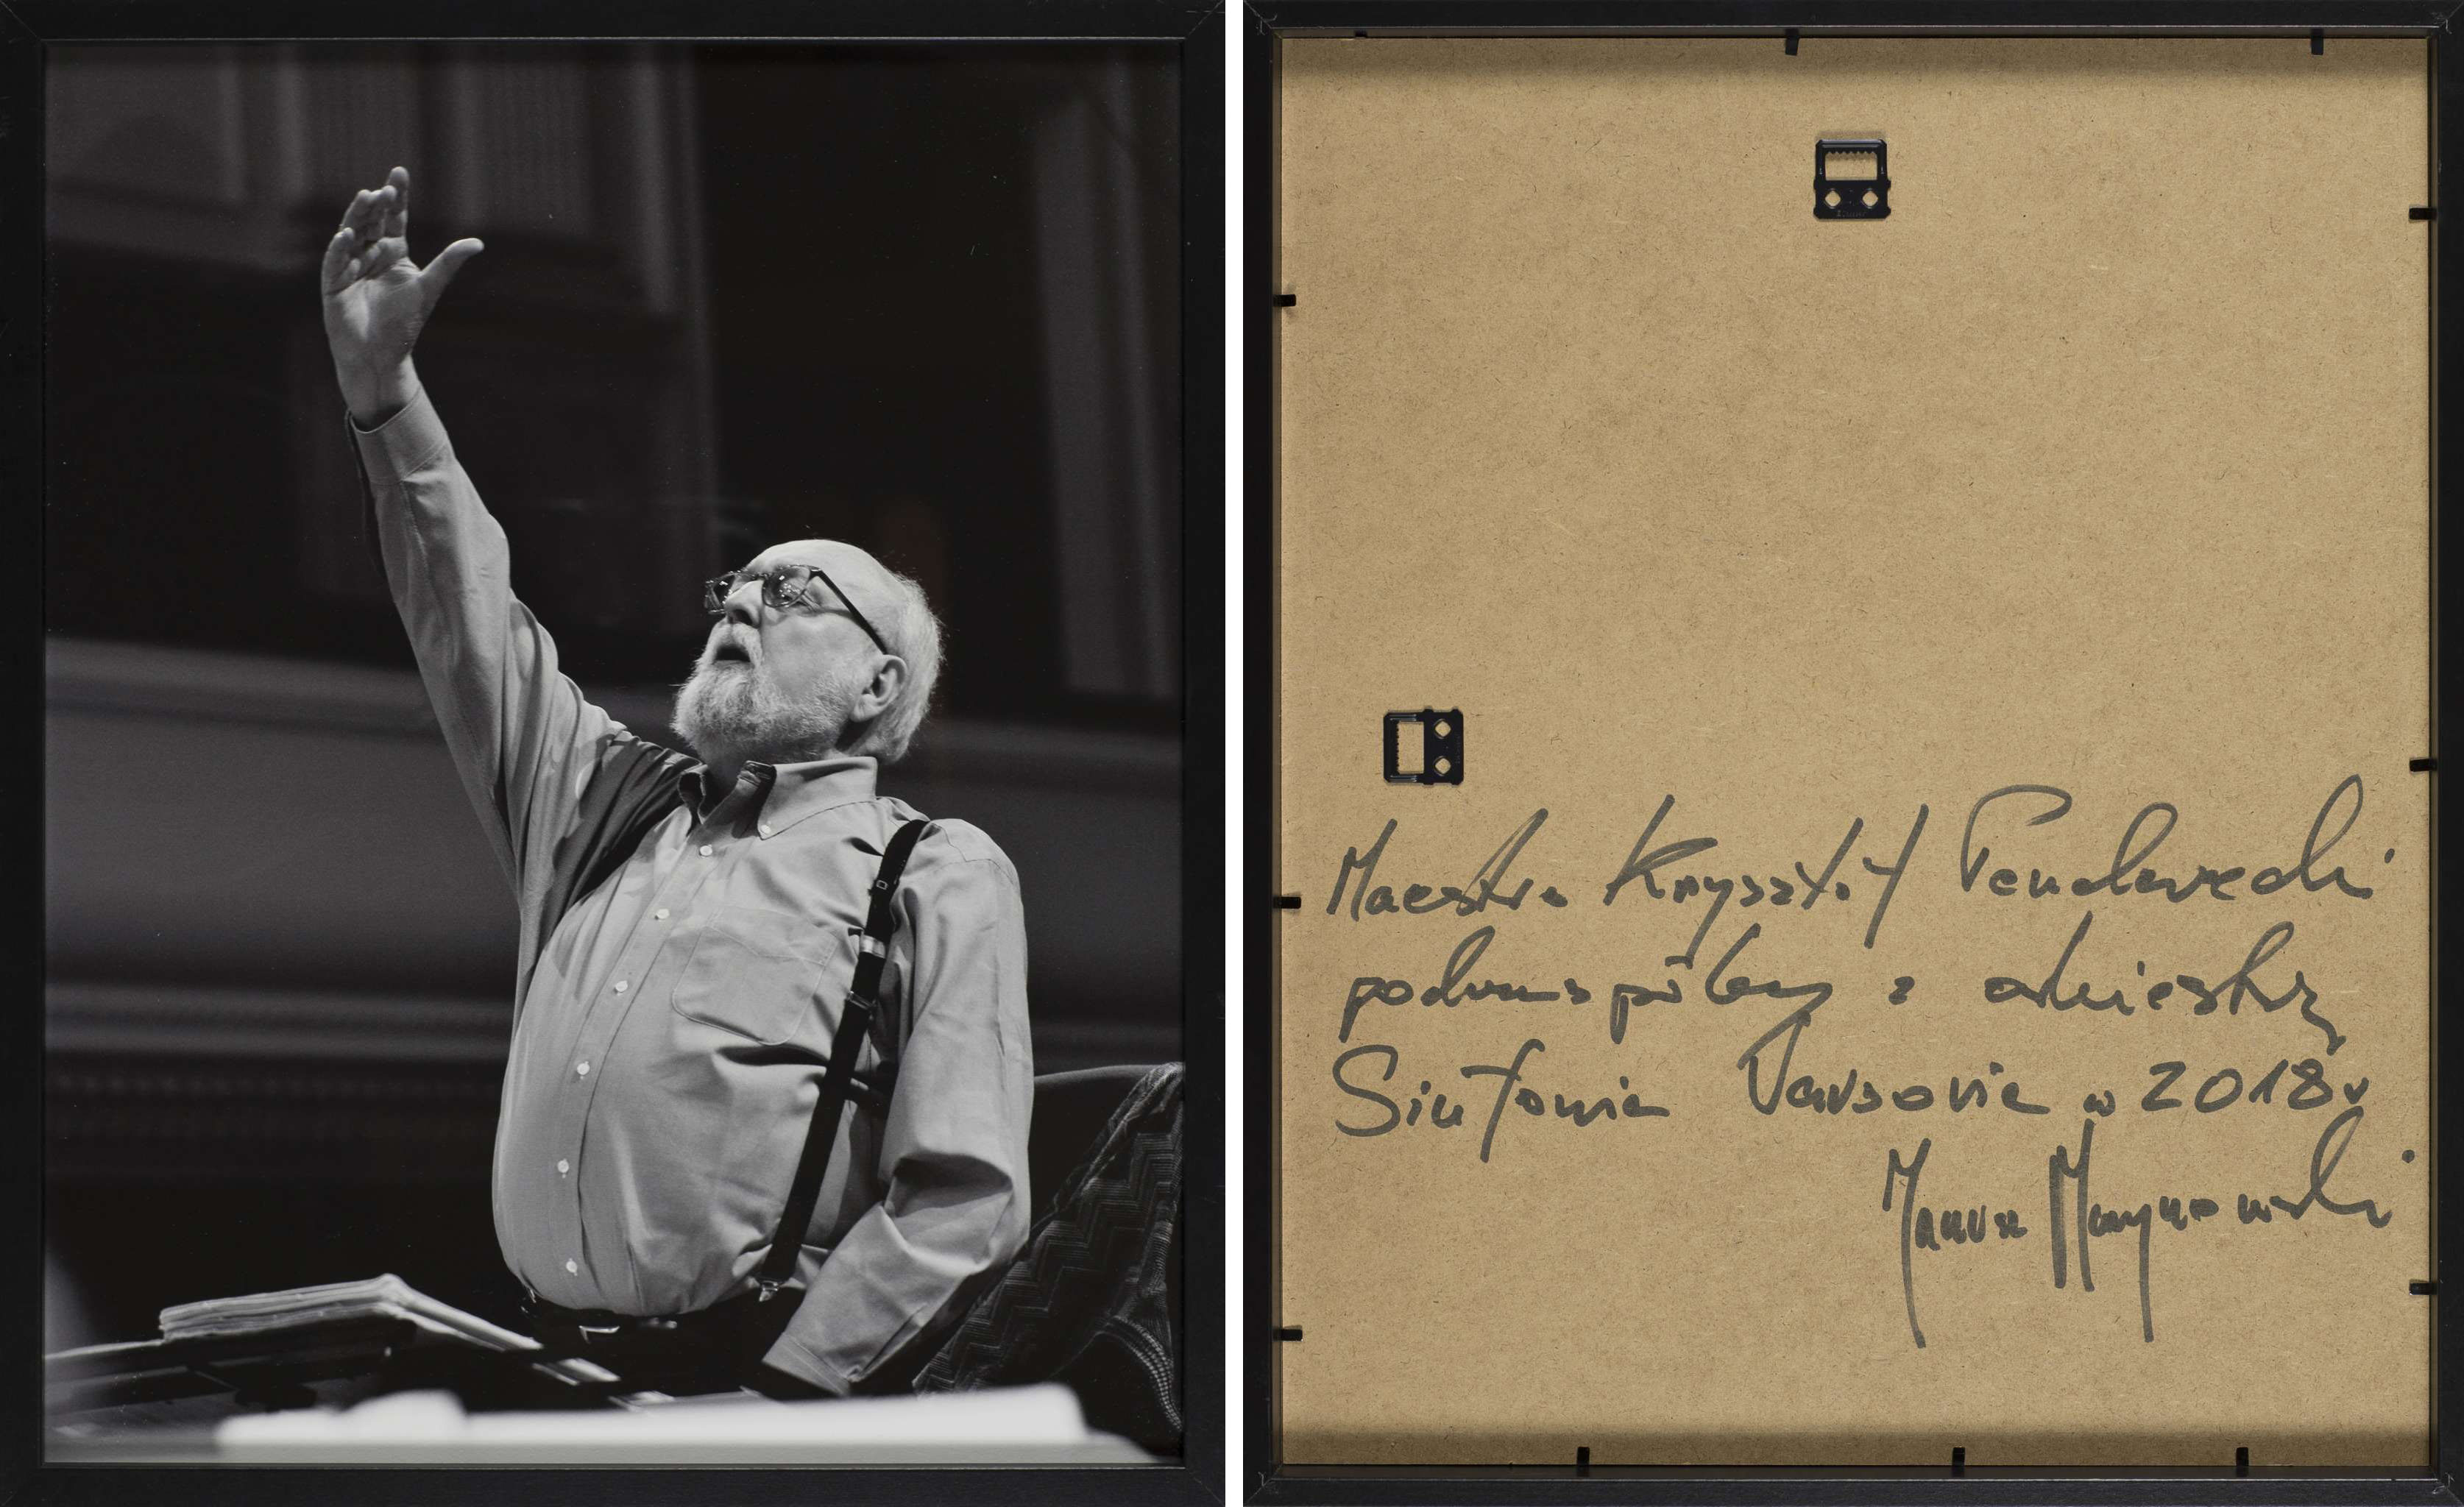 Maestro Krzysztof Penderecki
podczas próby z orkiestrą
Sinfonia Varsovia w 2018r
Janusz Marynowski